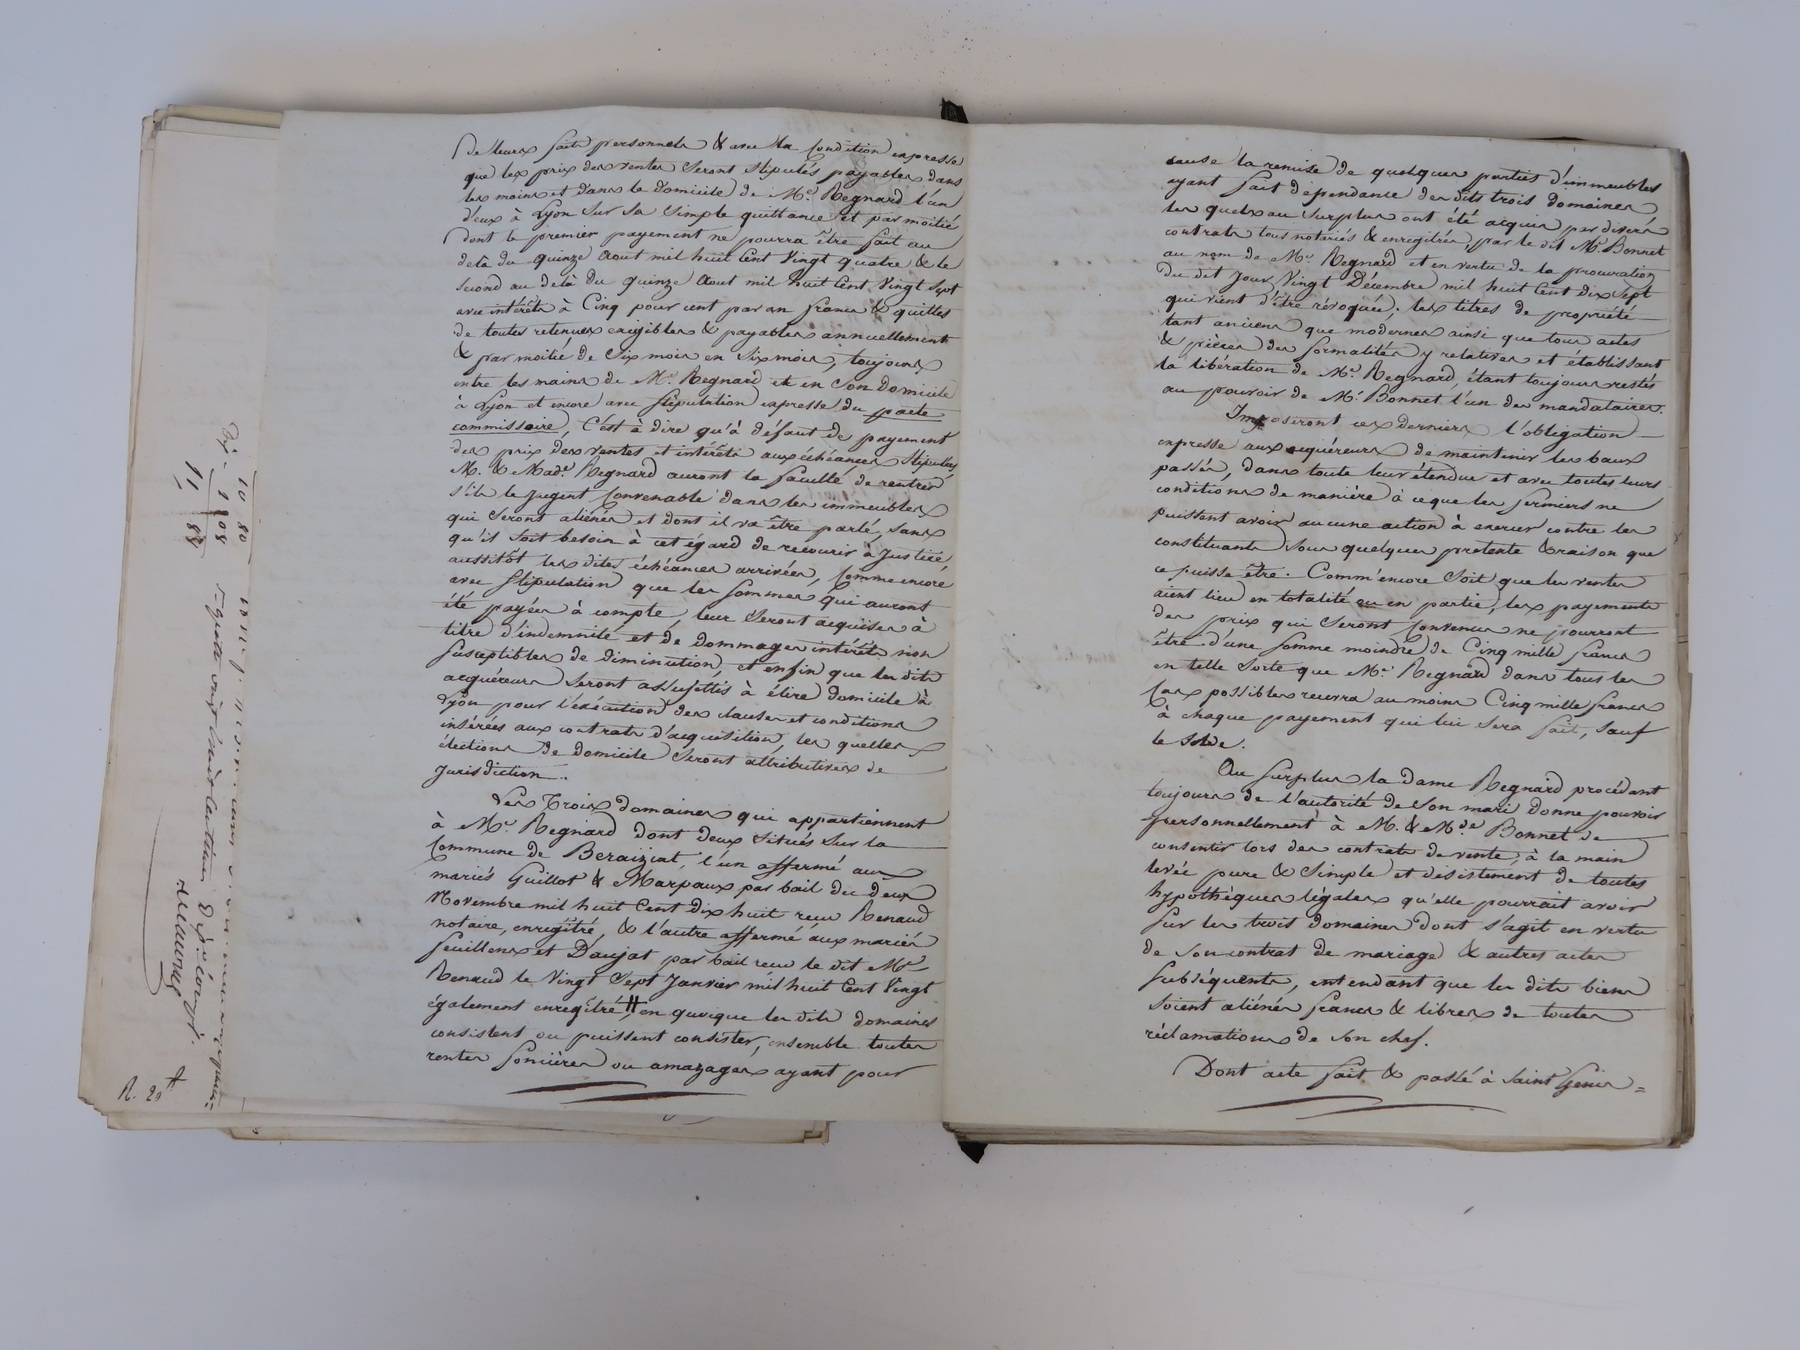 De leurs faits personnels & avec la Condition expresse
que les prix des ventes Seront Stipulés payables dans
les mains et dans le domicile de Mr. Regnard l'un
d'eux à Lyon Sur Sa Simple quittance et par moitié
dont le premier payement ne pourra être fait au
delà du quinze Aout mil huit Cent Vingt quatre & le
Second au delà du quinze Aout mil huit Cent Vingt Sept
avec intérêts à Cinq pour cent par an francs & quittes
de toutes retenues exigibles & payables annuellement
& par moitié de Six mois en Six mois, toujours
entre les mains de Mr. Regnard et en Son Domicile
à Lyon et encore avec Stipulation expresse du pacte
commissoire, C'est à dire qu'à défaut de payement
des prix des ventes et intérêts aux échéances Stipulées
M. & Made. Regnard auront la faculté de rentrer
s'ils le Jugent Convenable dans les immeubles
qui Seront aliénés et dont il va être parlé, Sans
qu'il Soit besoin à cet égard de recourir à Justice,
aussitôt les dites échéances arrivées, Comme encore
avec Stipulation que les Sommes qui auront
été payées à compte, leur Seront acquises à
titre d'indemnité et de dommages intérêts non
Susceptibles de diminution, et enfin que les dits
acquéreurs Seront assujettis à élire domicile à
Lyon pour l'exécution des clauses et conditions
insérées aux contrats d'acquisition, les quelles
élections de domicile Seront attributives de
Jurisdiction.
Les Trois domaines qui appartiennent
à Mr. Regnard dont deux Situés Sur la
Commune de Beraiziat, l'un affermé aux
mariés Guillot & Marpaux par bail du deux
Novembre mil huit Cent Dix huit reçu Renaud
notaire, enregitré, & l'autre affermé aux mariés
feuillens et Daujat par bail reçu le dit Me
Renaud le Vingt Sept Janvier mil huit Cent Vingt
également enregitré, en quoique les dits domaines
consistent ou puissent consister, ensemble toutes
rentes foncières ou amazages ayant pour
cause la remise de quelques parties d'immeubles
ayant fait dépendance des dits trois domaines
les quels au Surplus ont été acquis par divers
contrats tous notariés & enregitrés, par le dit Mr. Bonnet
au nom de Mr. Regnard et en vertu de la procuration
du dit Jour Vingt Décembre mil huit Cent Dix Sept
qui vient d'être révoquée; les titres de propriété
tant anciens que modernes ainsi que tous actes
& pièces des formalités y relatives et établissant
la libération de Mr. Regnard, étant toujours restés
au pouvoir de Mr. Bonnet l'un des mandataires.
Imposeront ces derniers l'obligation
expresse aux acquéreurs de maintenir les baux
passés, dans toute leur étendue et avec toutes leurs
conditions de manière à ce que les fermiers ne
puissent avoir aucune action à exercer contre les
constituants Sous quelques pretexte & raison que
ce puisse être. Comm'encore Soit que les ventes
aient lieu en totalité ou en partie, les payements
des prix qui Seront Convenus ne pourront
être d'une Somme moindre de Cinq mille francs
en telle Sorte que Mr. Regnard dans tous les
Cas possibles recevra au moins Cinq mille francs
à chaque payement qui lui Sera fait, Sauf
le Solde.
Au Surplus la Dame Regnard procédant
toujours de l'autorité de Son mari donne pouvoir
personnellement à M. & Mde. Bonnet de
consentir lors des contrats de vente, à la main
levée pure & Simple et désistement de toutes
hypothèques légales qu'elle pourrait avoir
Sur les trois domaines dont s'agit en vertu
de Son contrat de mariage & autres actes
Subséquents, entendant que les dits biens
Soient aliénés francs & libres de toutes
réclamations de Son chef.
Dont acte fait & passé à Saint Genis=
10 80
1 08
11, 88
R. 20